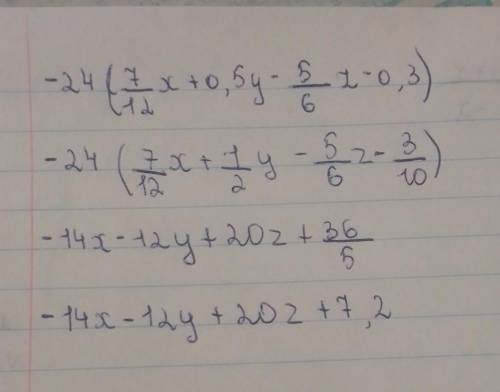 -24(7/12x+0,5y-5/6z-0,3)
-24(7/12x+1/2y-5/6z-3/10)
-14x-12y+20z+36/5
-14x-12y+20z+7,2